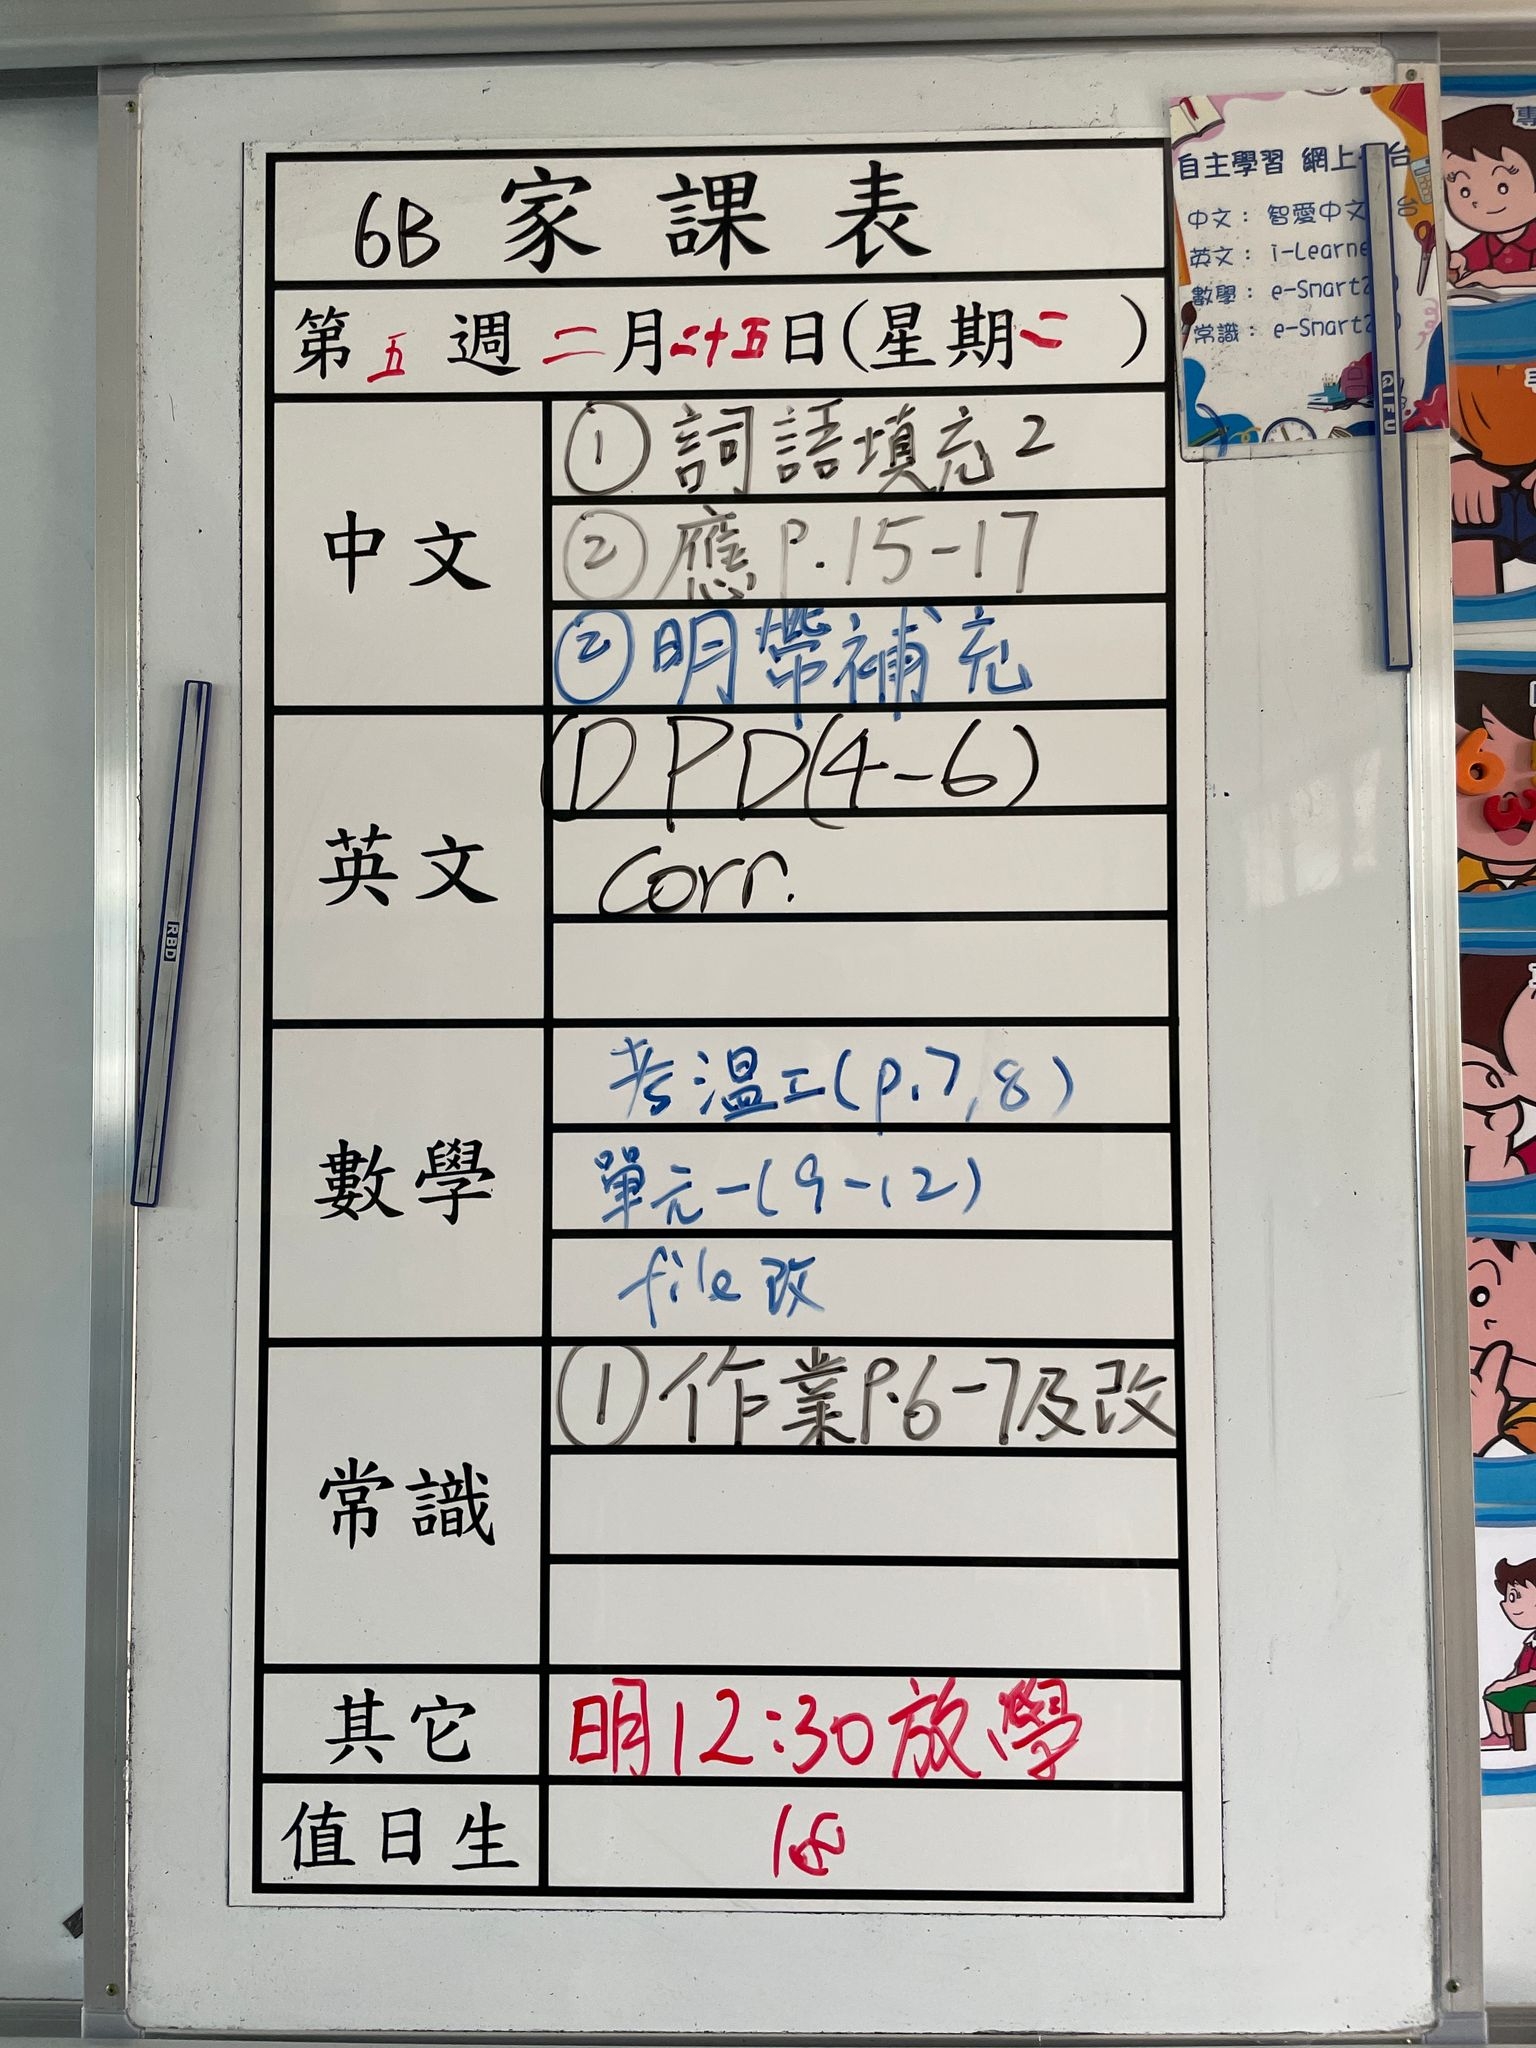 6B 家課表
第五週二月二十五日(星期二)
中文
①詞語填充2
②應P.15-17
②明帶補充
英文
① PD(4-6)
corr.
數學
考溫工(p.7,8)
單元一(9-12)
file改
常識
①作業P.6-7及改
其它
明12:30放學
值日生
自主學習 網上 台
中文： 智愛中文
英文： i-Learne
數學： e-Smart
常識： e-Smart
QIFU
RBD
6
3